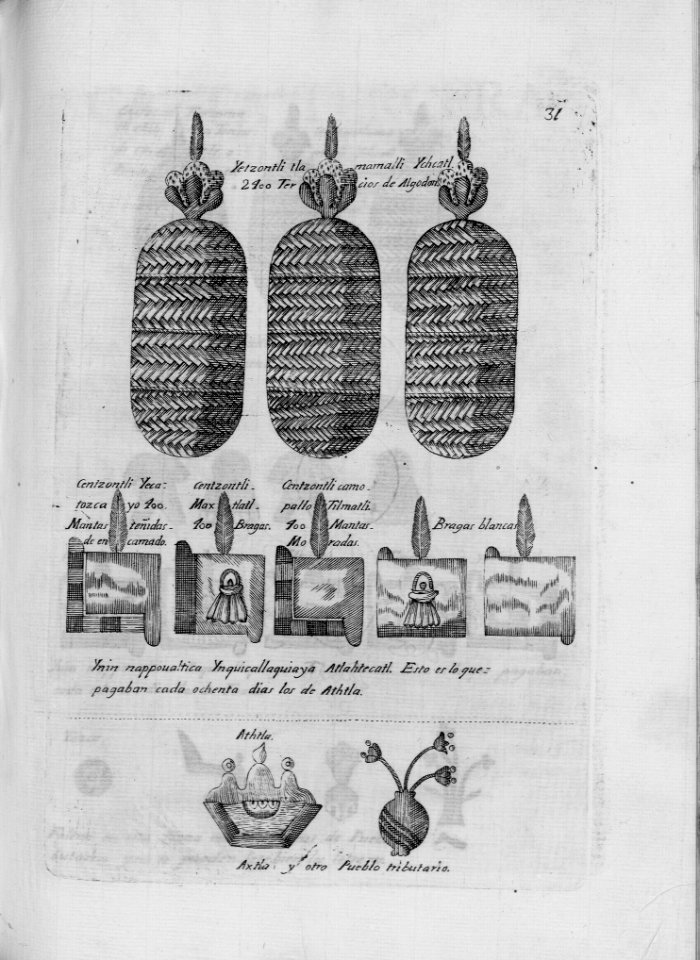 31
Yetzontli tla mamalli Ychcatl.
2400 Ter cios de Algodon.
Centzontli Yeca=
tozca yo 400.
Mantas teñidas-
de en carnado.
Centzontli.
Max tlatl-
400 Bragas.
Centzontli camo-
pallo Tilmatli.
400 Mantas-
Mo radas.
Bragas blancas
Ynin nappoualtica Ynquicallaquiaya Atlahtecatl. Esto es lo que=
pagaban cada ochenta dias los de Athtla.
Athtla.
Axtla y otro Pueblo tributario.